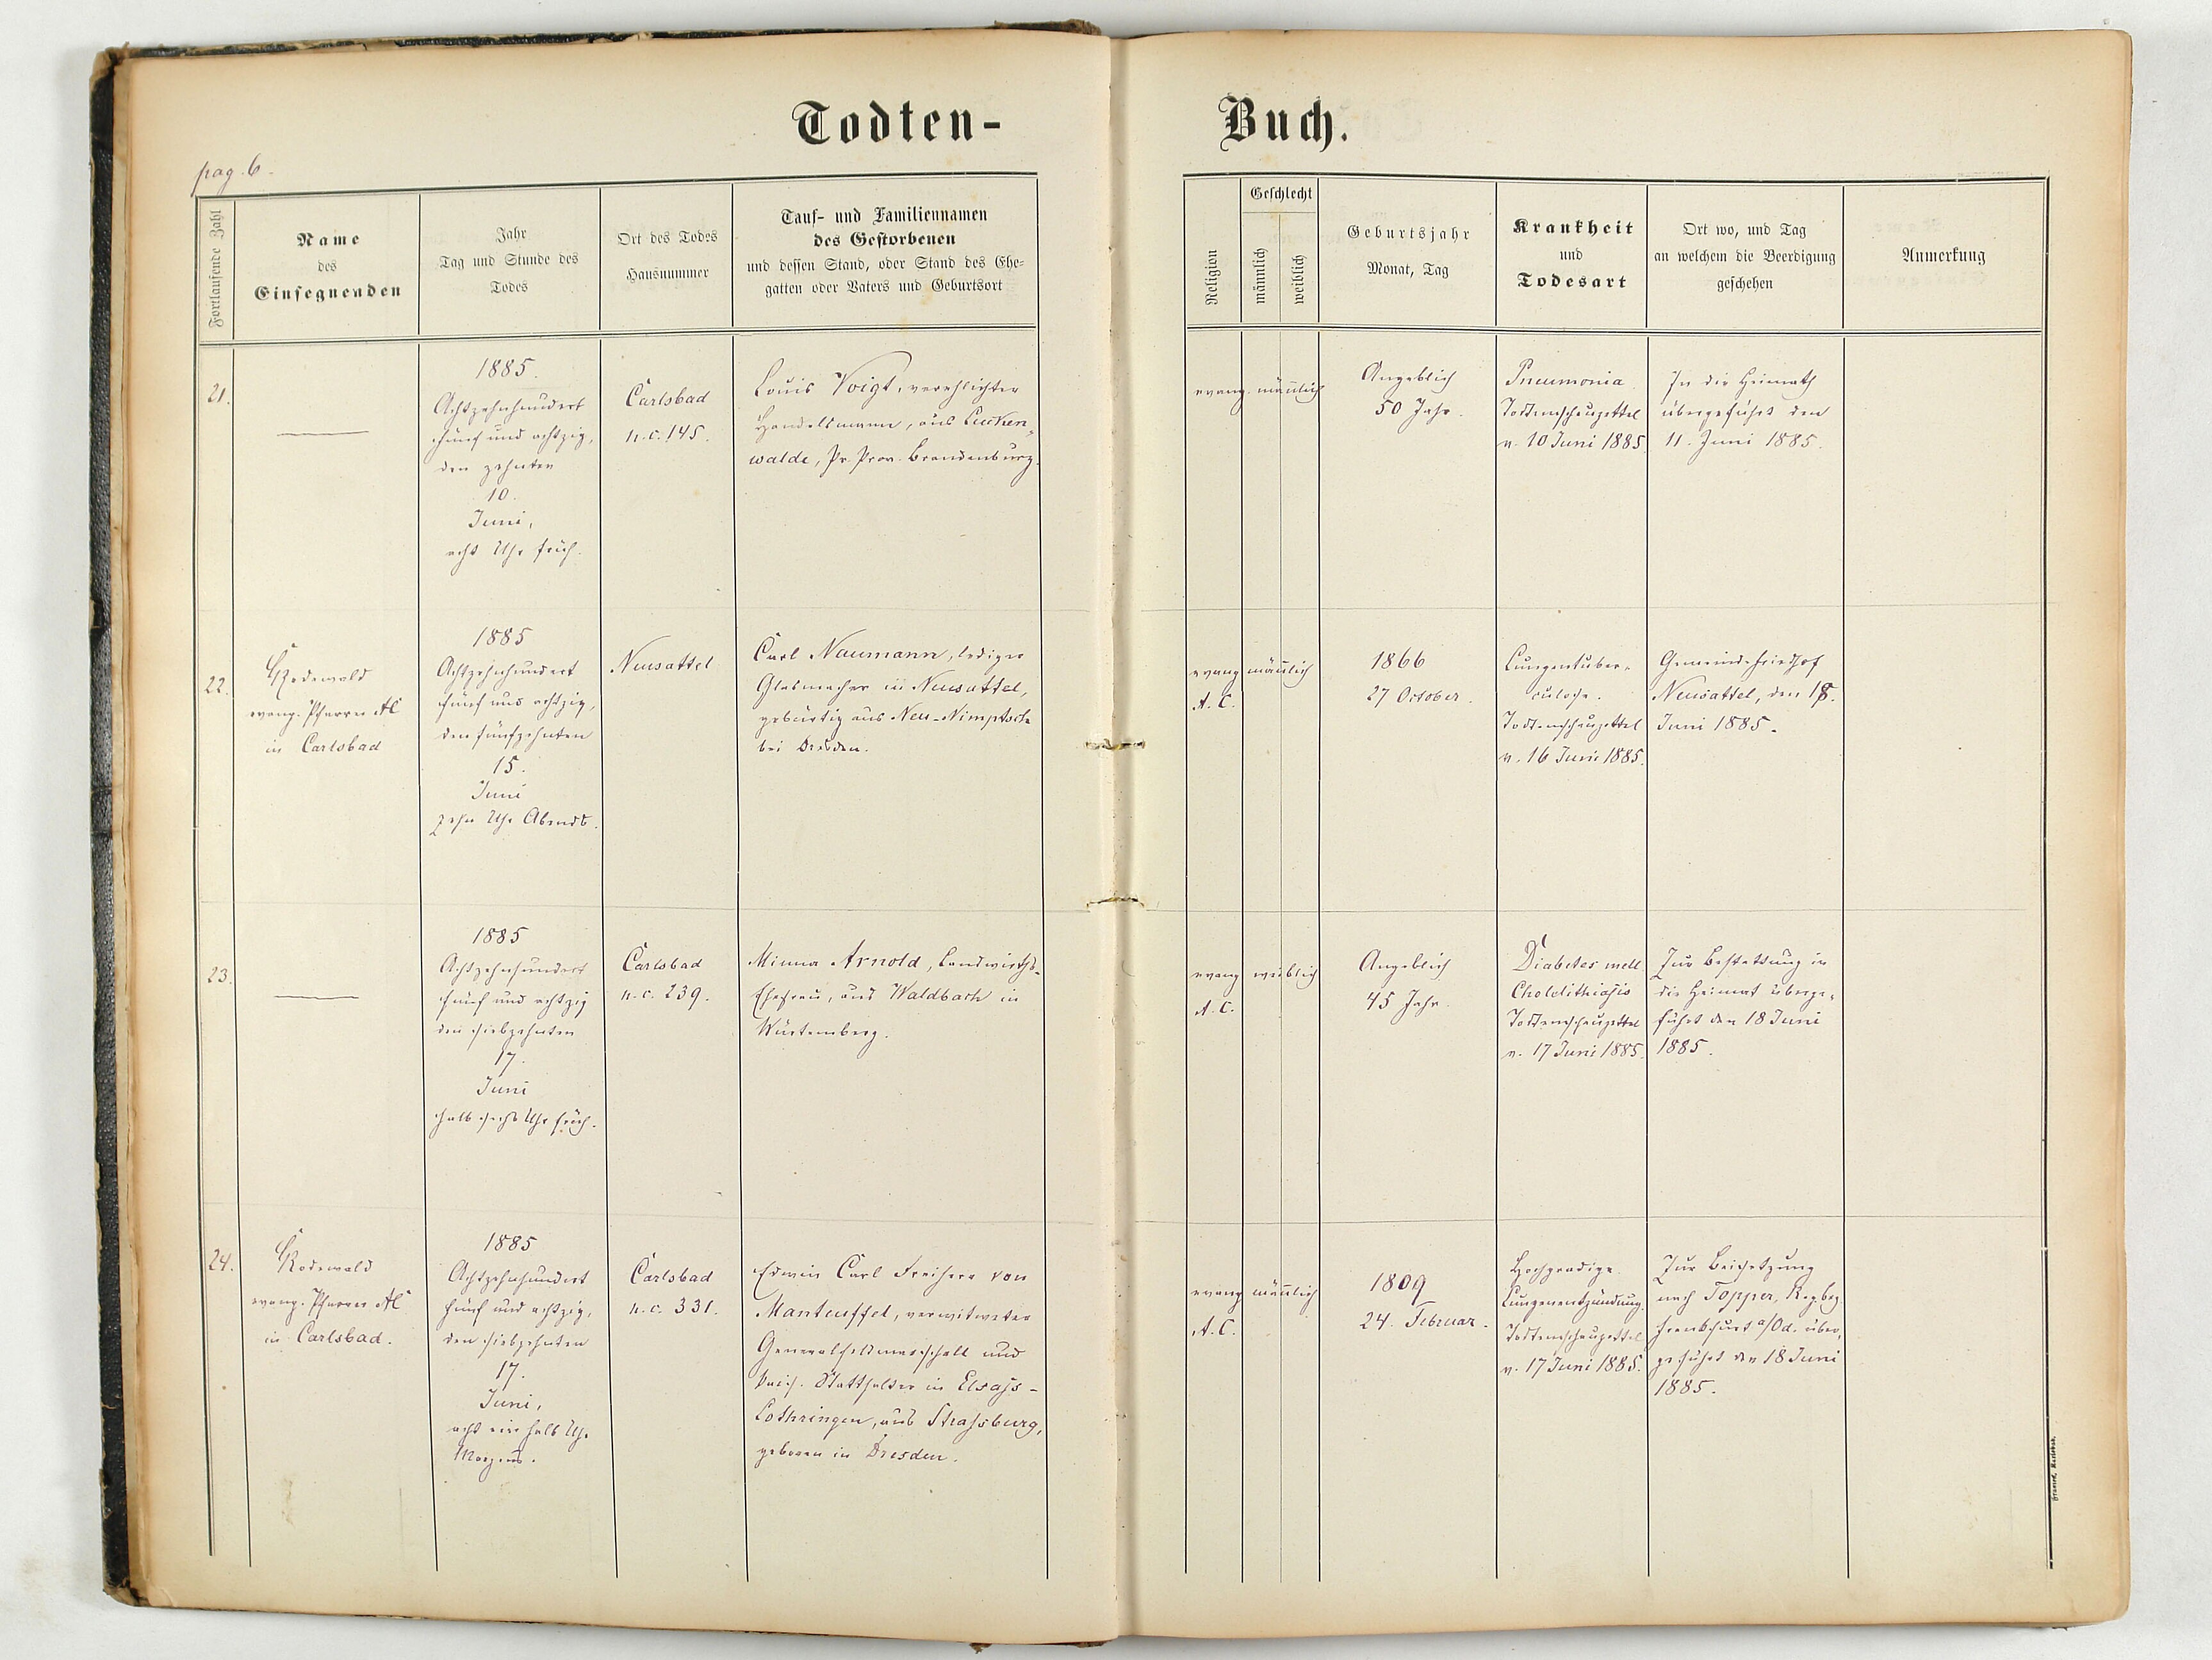 Todten-
Buch.
pag. 6.
Fortlaufende Zahl
Name
des
Einsegnenden
Jahr
Tag und Stunde des
Todes
Ort des Todes
Hausnummer
Tauf- und Familiennamen
des Gestorbenen
und dessen Stand, oder Stand des Ehe-
gatten oder Vaters und Geburtsort
Religion
Geschlecht
männlich
weiblich
Geburtsjahr
Monat, Tag
Krankheit
und
Todesart
Ort wo, und Tag
an welchem die Beerdigung
geschehen
Anmerkung
21.
1885.
Achtzehnhundert
fünf und achtzig,
den zehnten
10.
Juni,
acht Uhr früh.
Carlsbad
n.c. 145.
Louis Voigt, verehlichter
Handelsmann, aus Lucken-
walde, Pr. Prov. Brandenburg.
evang. männlich
Angeblich
50 Jahr.
Pneumonia
Todtenschauzettel
v. 10 Juni 1885.
In die Heimath
übergeführt den
11. Juni 1885.
22.
Rodewald
evang. Pfarrer AC
in Carlsbad
1885
Achtzehnhundert
fünf und achtzig,
den fünfzehnten
15.
Juni
zehn Uhr Abends.
Neusattel
Carl Naumann, lediger
Glasmacher in Neusattel,
gebürtig aus Neu-Nimptsch
bei Dresden.
evang männlich
A.C.
1866
27 October.
Lungentuber-
culose.
Todtenschauzettel
v. 16 Juni 1885.
Gemeindefriedhof
Neusattel, den 18.
Juni 1885.
23.
1885
Achtzehnhundert
fünf und achtzig
den siebzehnten
17.
Juni
halb sechs Uhr früh.
Carlsbad
n.c. 239.
Minna Arnold, Landwirths-
Ehefrau, aus Waldbach in
Würtemberg.
evang weiblich
A.C.
Angeblich
45 Jahr.
Diabetes mell
Cholelithiasis
Todtenschauzettel
v. 17 Juni 1885.
Zur Bestattung in
die Heimat überge-
führt den 18 Juni
1885.
24.
Rodewald
evang. Pfarrer AC
in Carlsbad.
1885
Achtzehnhundert
fünf und achtzig,
den siebzehnten
17.
Juni,
acht ein halb Uhr
Morgens.
Carlsbad
n.c. 331.
Edwin Carl Freiherr von
Manteuffel, verwitweter
Generalfeldmarschall und
kais. Statthalter in Elsass-
Lothringen, aus Strassburg,
geboren in Dresden.
evang männlich
A.C.
1809
24. Februar.
Hochgradige
Lungenentzündung.
Todtenschauzettel
v. 17 Juni 1885.
Zur Beisetzung
nach Topper, Rgbez.
Frankfurt a/Od. über-
geführt den 18 Juni
1885.